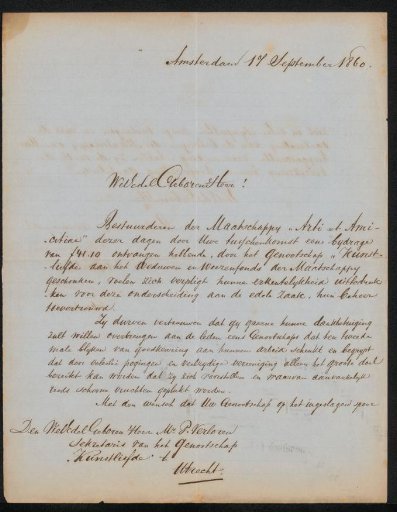 Amsterdam 17 September 1860.
WelEdel Geboren Heer!
Bestuurderen der Maatschappy „Arti et Ami-
citiae" dezer dagen door Uwe tusschenkomst eene bydrage
van ƒ41.10 ontvangen hebbende, door het Genootschap „Kunst-
liefde aan het Weduwen en Weezenfonds" der Maatschappy
geschonken, voelen zich verpligt hunne erkentelykheid uittedruk-
ken voor deze onderscheiding aan de edele zaak, hun beheer
toevertrouwd.
Zy durven vertrouwen dat gy gaarne hunne dankbetuiging
zult willen overbrengen aan de leden eens Genootschaps dat ten tweede-
male blyken van goedkeuring aan hunnen arbeid schenkt en begrypt
dat door enkele pogingen en veelzydige vereeniging alleen het groote doel
bereikt kan worden dat zy zich voorstellen en waarvan aanvankelyk
reeds schoone vruchten geplukt worden.
Met den wensch dat Uw Genootschap op het ingeslagen spoor
Den WelEdel Geboren Heer Mr. P. Verloren
Sekretaris van het Genootschap
„Kunstliefde" t
Utrecht.